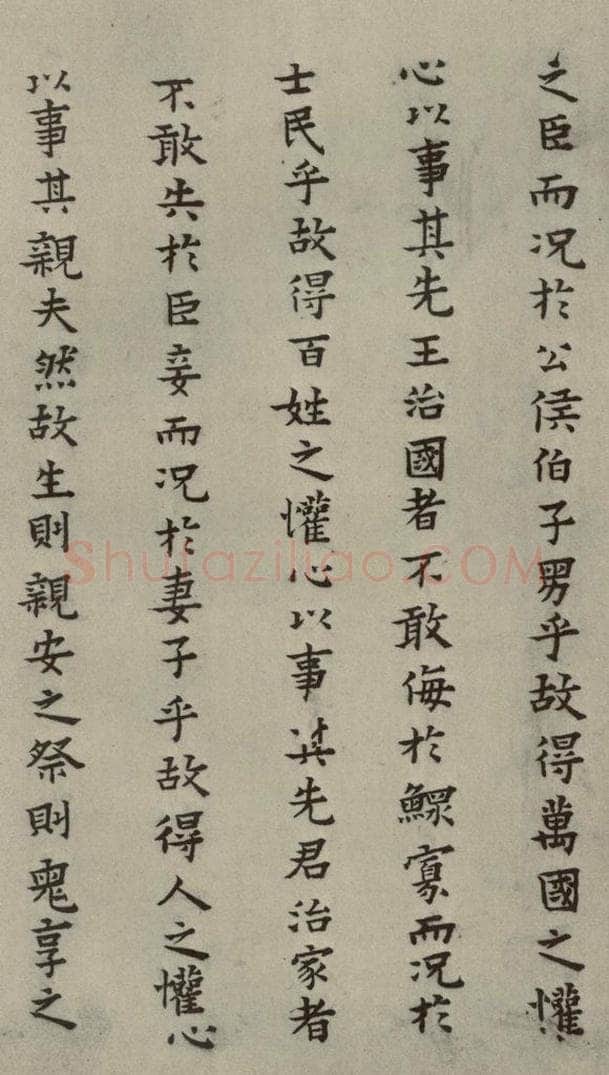 之臣而况於公侯伯子男乎故得萬國之懽
心以事其先王治國者不敢侮於鰥寡而况於
士民乎故得百姓之懽心以事其先君治家者
不敢失於臣妾而况於妻子乎故得人之懽心
以事其親夫然故生則親安之祭則鬼享之
Shufaziliao.COM